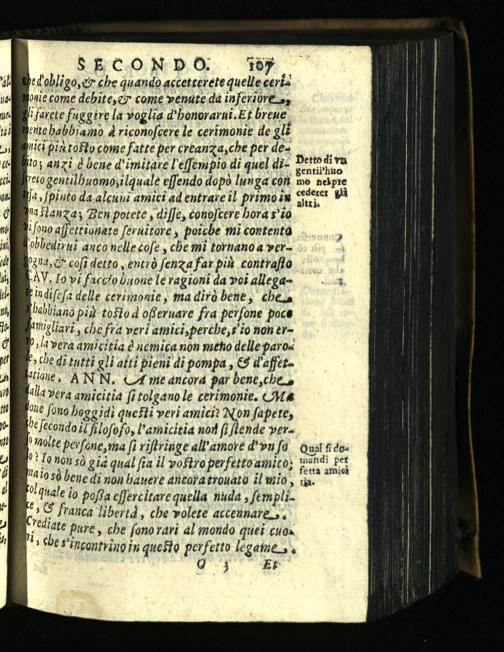 SECONDO. 107
che d'obligo, & che quando accetterete quelle ceri-
monie come debite, & come venute da inferiore,
gli farete fuggire la voglia d'honorarui. Et breue
mente habbiamo à riconoscere le cerimonie de gli
amici piu tosto come fatte per creanza, che per de-
bito; anzi è bene d'imitare l'essempio di quel di-
screto gentilhuomo, ilquale essendo dopò lunga con
tesa, spinto da alcuni amici ad entrare il primo in
vna stanza; Ben potete, disse, conoscere hora s'io
vi sono affettionato seruitore, poiche mi contento
d'obbedirui anco nelle cose, che mi tornano a ver-
gogna, & cosi detto, entrò senza far più contrasto
CAV. Io vi faccio buone le ragioni da voi allega-
te in difesa delle cerimonie, ma dirò bene, che
s'habbiano più tosto d'osseruare fra persone poco
famigliari, che fra veri amici, perche, s'io non er-
ro, la vera amicitia è nemica non meno delle paro-
le, che di tutti gli atti pieni di pompa, & d'affet-
tatione. ANN. A me ancora par bene, che
dalla vera amicitia si tolgano le cerimonie. Ma
doue sono hoggidì questi veri amici? Non sapete,
che secondo il filosofo, l'amicitia non si stende ver-
so molte persone, ma si ristringe all'amore d'vn so
lo? Io non sò già qual sia il vostro perfetto amico;
ma io sò bene di non hauere ancora trouato il mio,
col quale io possa essercitare quella nuda, sempli-
ce, & franca libertà, che volete accennare.
Crediate pure, che sono rari al mondo quei cuo-
ri, che s'incontrino in questo perfetto legame.
O 3 Et
Detto di vn
gentil'huo
mo nel pre
cedere gli
altri.
Qual si do-
mandi per
fetta amici
tia.